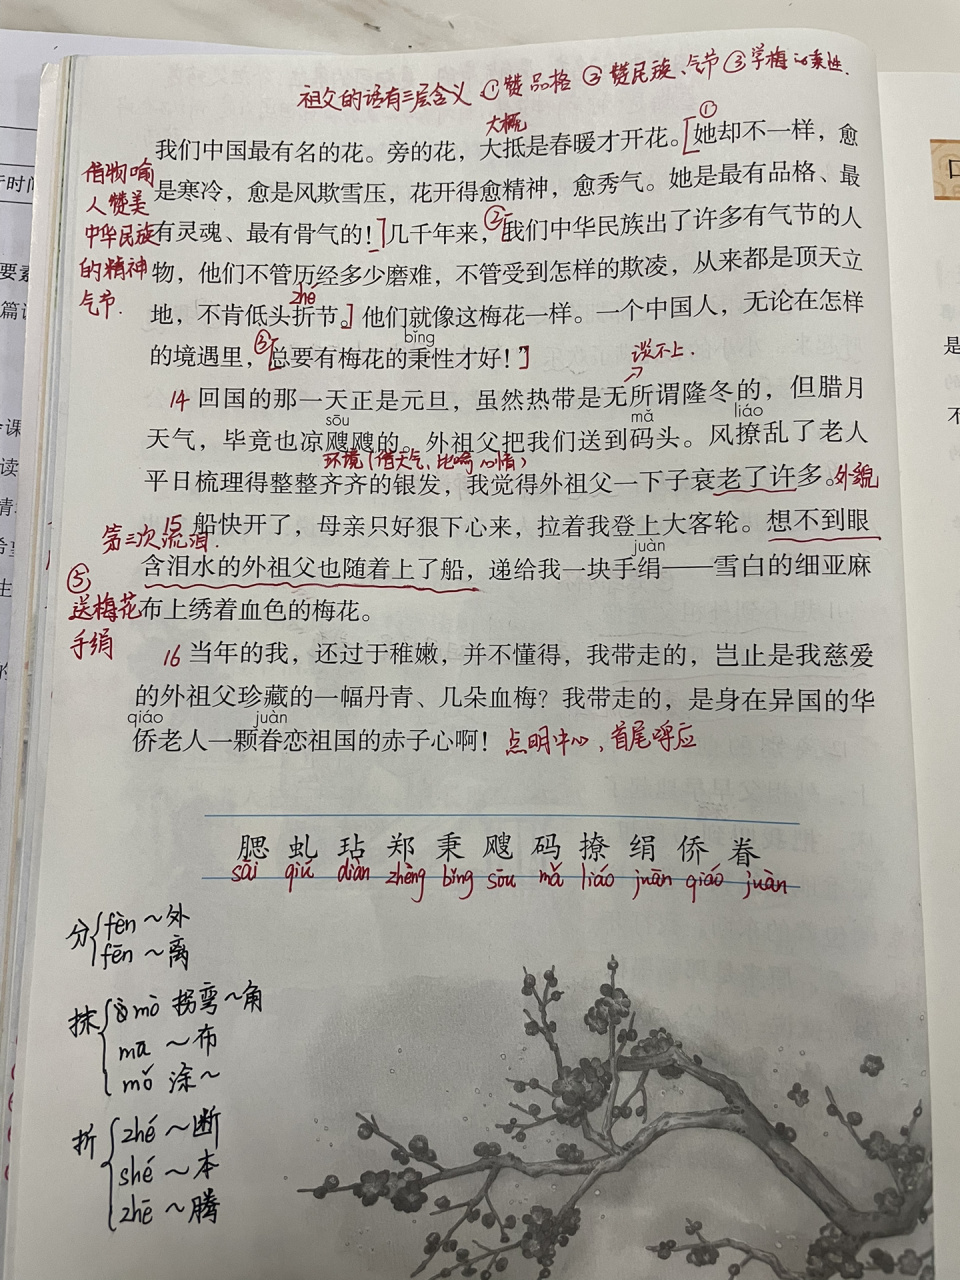 祖父的话有三层含义 ①赞品格 ② 赞民族、气节 ③学梅的秉性.
大概
①
我们中国最有名的花。旁的花，大抵是春暖才开花。[她却不一样，愈
是寒冷，愈是风欺雪压，花开得愈精神，愈秀气。她是最有品格、最
有灵魂、最有骨气的！]几千年来，②[我们中华民族出了许多有气节的人
物，他们不管历经多少磨难，不管受到怎样的欺凌，从来都是顶天立
zhé
地，不肯低头折节。]他们就像这梅花一样。一个中国人，无论在怎样
bǐng
的境遇里，③[总要有梅花的秉性才好！”]
借物喻
人赞美
中华民族
的精神
气节.
谈不上.
14 回国的那一天正是元旦，虽然热带是无所谓隆冬的，但腊月
sōu mǎ liáo
天气，毕竟也凉飕飕的。外祖父把我们送到码头。风撩乱了老人
环境(借天气、比喻心情)
平日梳理得整整齐齐的银发，我觉得外祖父一下子衰老了许多。外貌
第三次流泪.
15 船快开了，母亲只好狠下心来，拉着我登上大客轮。想不到眼
juàn
含泪水的外祖父也随着上了船，递给我一块手绢——雪白的细亚麻
布上绣着血色的梅花。
⑤
送梅花
手绢
16 当年的我，还过于稚嫩，并不懂得，我带走的，岂止是我慈爱
的外祖父珍藏的一幅丹青、几朵血梅？我带走的，是身在异国的华
qiáo juàn
侨老人一颗眷恋祖国的赤子心啊！ 点明中心、首尾呼应
腮 虬 玷 郑 秉 飕 码 撩 绢 侨 眷
sāi qiú diàn zhèng bǐng sōu mǎ liáo juān qiáo juàn
分 fèn ～外
fēn ～离
抹 mò 拐弯～角
mā ～布
mǒ 涂～
折 zhé ～断
shé ～本
zhē ～腾
是